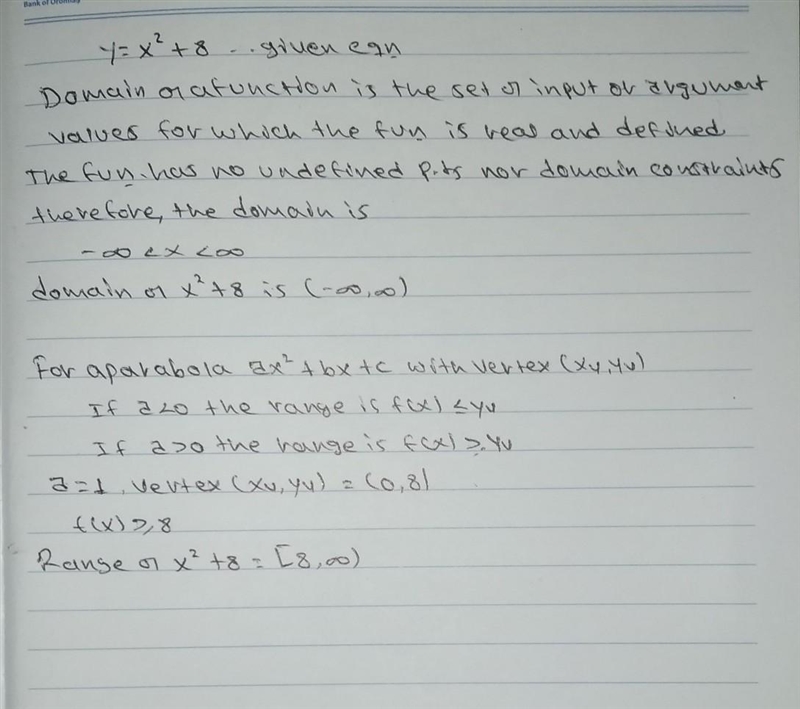 Bank of Oromia
y = x² + 8 .. given eqn
Domain of a function is the set of input or argument
values for which the fun is real and defined
The fun. has no undefined p.ts nor domain constraints
therefore, the domain is
-∞ < x < ∞
domain of x² + 8 is (-∞, ∞)
For a parabola ax² + bx + c with vertex (xv, yv)
If a < 0 the range is f(x) ≤ yv
If a > 0 the range is f(x) ≥ yv
a = 1, vertex (xv, yv) = (0, 8)
f(x) ≥ 8
Range of x² + 8 = [8, ∞)